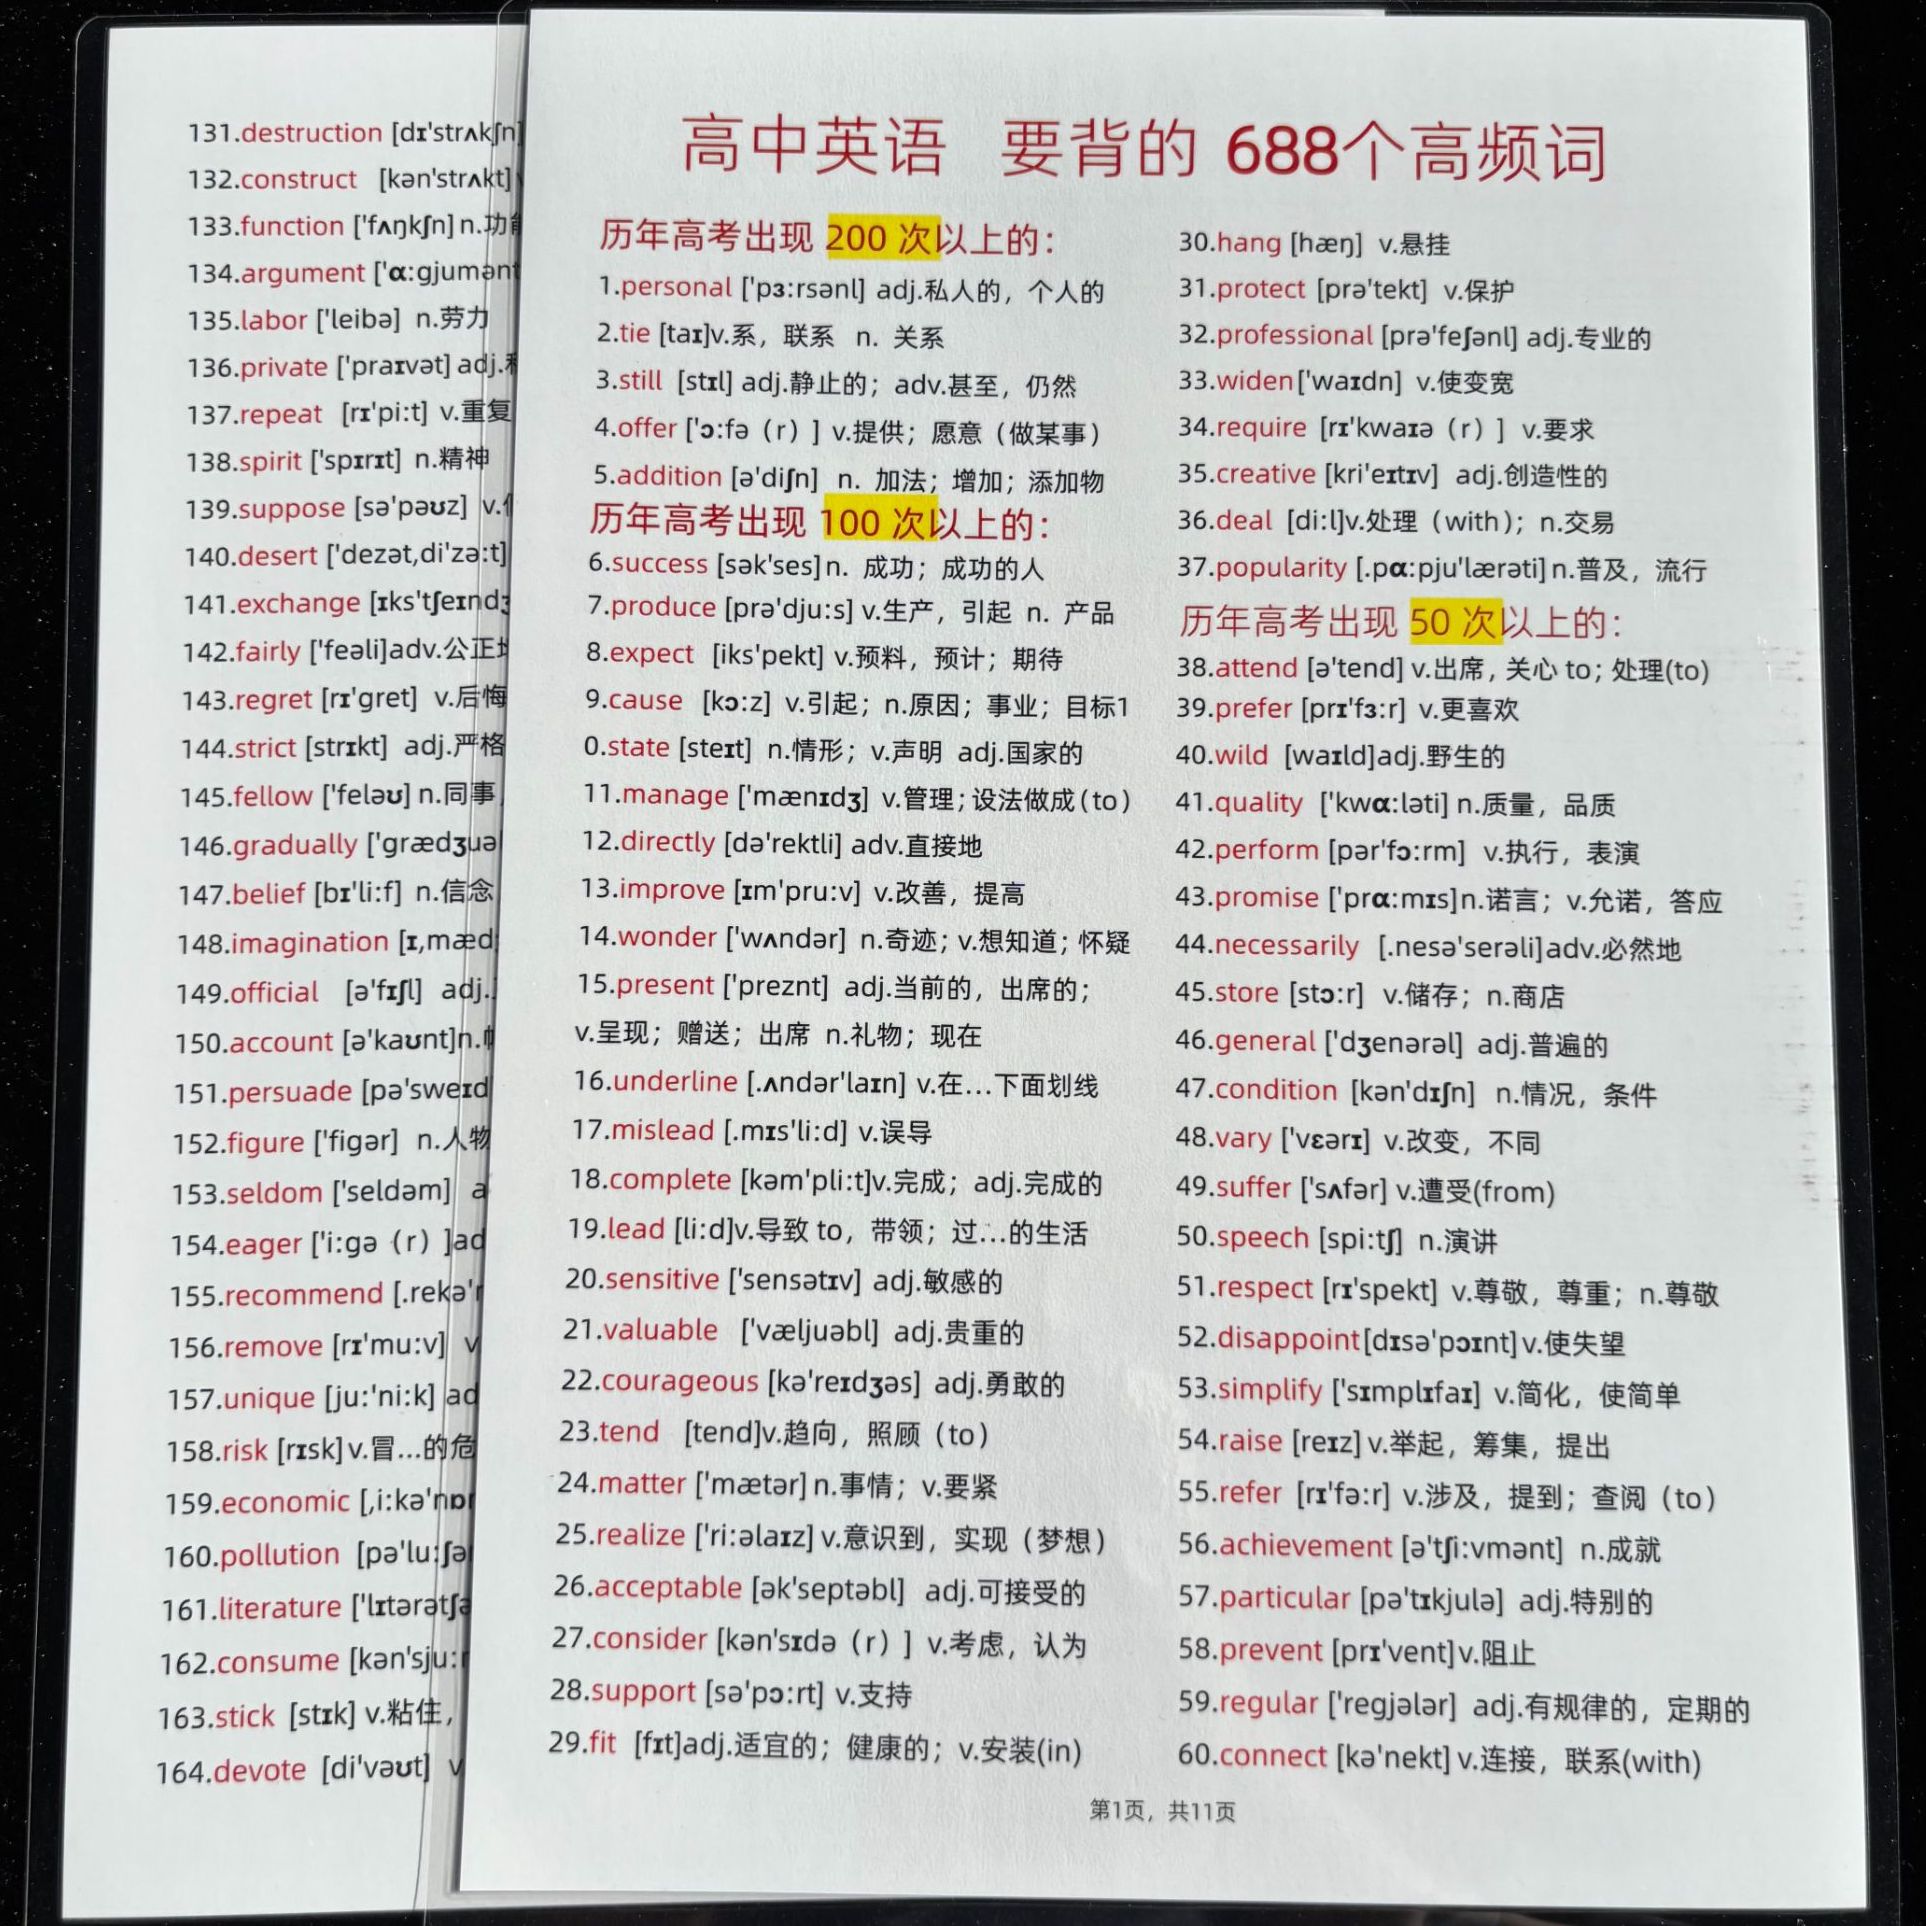 131.destruction [dɪ'strʌkʃn]
132.construct [kən'strʌkt]
133.function ['fʌŋkʃn] n.功能
134.argument ['ɑ:gjumənt
135.labor ['leibə] n.劳力
136.private ['praɪvət] adj.
137.repeat [rɪ'pi:t] v.重复
138.spirit ['spɪrɪt] n.精神
139.suppose [sə'pəʊz] v.
140.desert ['dezət,di'zə:t]
141.exchange [ɪks'tʃeɪndʒ
142.fairly ['feəli]adv.公正地
143.regret [rɪ'gret] v.后悔
144.strict [strɪkt] adj.严格
145.fellow ['feləʊ] n.同事
146.gradually ['grædʒuə
147.belief [bɪ'li:f] n.信念
148.imagination [ɪ,mædʒ
149.official [ə'fɪʃl] adj.
150.account [ə'kaʊnt]n.
151.persuade [pə'sweɪd
152.figure ['figər] n.人物
153.seldom ['seldəm] a
154.eager ['i:gə（r）]ad
155.recommend [.rekə'
156.remove [rɪ'mu:v] v
157.unique [ju:'ni:k] ad
158.risk [rɪsk]v.冒…的危
159.economic [,i:kə'nɒ
160.pollution [pə'lu:ʃə
161.literature ['lɪtərətʃə
162.consume [kən'sju:
163.stick [stɪk] v.粘住，
164.devote [di'vəʊt] v
高中英语 要背的 688个高频词
历年高考出现 200 次以上的：
1.personal ['pɜ:rsənl] adj.私人的，个人的
2.tie [taɪ]v.系，联系 n. 关系
3.still [stɪl] adj.静止的；adv.甚至，仍然
4.offer ['ɔ:fə（r）] v.提供；愿意（做某事）
5.addition [ə'diʃn] n. 加法；增加；添加物
历年高考出现 100 次以上的：
6.success [sək'ses]n. 成功；成功的人
7.produce [prə'dju:s] v.生产，引起 n. 产品
8.expect [iks'pekt] v.预料，预计；期待
9.cause [kɔ:z] v.引起；n.原因；事业；目标1
0.state [steɪt] n.情形；v.声明 adj.国家的
11.manage ['mænɪdʒ] v.管理；设法做成(to)
12.directly [də'rektli] adv.直接地
13.improve [ɪm'pru:v] v.改善，提高
14.wonder ['wʌndər] n.奇迹；v.想知道；怀疑
15.present ['preznt] adj.当前的，出席的；
v.呈现；赠送；出席 n.礼物；现在
16.underline [.ʌndər'laɪn] v.在…下面划线
17.mislead [.mɪs'li:d] v.误导
18.complete [kəm'pli:t]v.完成；adj.完成的
19.lead [li:d]v.导致 to，带领；过…的生活
20.sensitive ['sensətɪv] adj.敏感的
21.valuable ['væljuəbl] adj.贵重的
22.courageous [kə'reɪdʒəs] adj.勇敢的
23.tend [tend]v.趋向，照顾（to）
24.matter ['mætər] n.事情；v.要紧
25.realize ['ri:əlaɪz] v.意识到，实现（梦想）
26.acceptable [ək'septəbl] adj.可接受的
27.consider [kən'sɪdə（r）] v.考虑，认为
28.support [sə'pɔ:rt] v.支持
29.fit [fɪt]adj.适宜的；健康的；v.安装(in)
30.hang [hæŋ] v.悬挂
31.protect [prə'tekt] v.保护
32.professional [prə'feʃənl] adj.专业的
33.widen['waɪdn] v.使变宽
34.require [rɪ'kwaɪə（r）] v.要求
35.creative [kri'eɪtɪv] adj.创造性的
36.deal [di:l]v.处理（with)；n.交易
37.popularity [.pɑ:pju'lærəti] n.普及，流行
历年高考出现 50 次以上的：
38.attend [ə'tend] v.出席，关心 to；处理(to)
39.prefer [prɪ'fɜ:r] v.更喜欢
40.wild [waɪld]adj.野生的
41.quality ['kwɑ:ləti] n.质量，品质
42.perform [pər'fɔ:rm] v.执行，表演
43.promise ['prɑ:mɪs]n.诺言；v.允诺，答应
44.necessarily [.nesə'serəli]adv.必然地
45.store [stɔ:r] v.储存；n.商店
46.general ['dʒenərəl] adj.普遍的
47.condition [kən'dɪʃn] n.情况，条件
48.vary ['vɛərɪ] v.改变，不同
49.suffer ['sʌfər] v.遭受(from)
50.speech [spi:tʃ] n.演讲
51.respect [rɪ'spekt] v.尊敬，尊重；n.尊敬
52.disappoint[dɪsə'pɔɪnt] v.使失望
53.simplify ['sɪmplɪfaɪ] v.简化，使简单
54.raise [reɪz] v.举起，筹集，提出
55.refer [rɪ'fə:r] v.涉及，提到；查阅（to）
56.achievement [ə'tʃi:vmənt] n.成就
57.particular [pə'tɪkjulə] adj.特别的
58.prevent [prɪ'vent]v.阻止
59.regular ['regjələr] adj.有规律的，定期的
60.connect [kə'nekt] v.连接，联系(with)
第1页，共11页